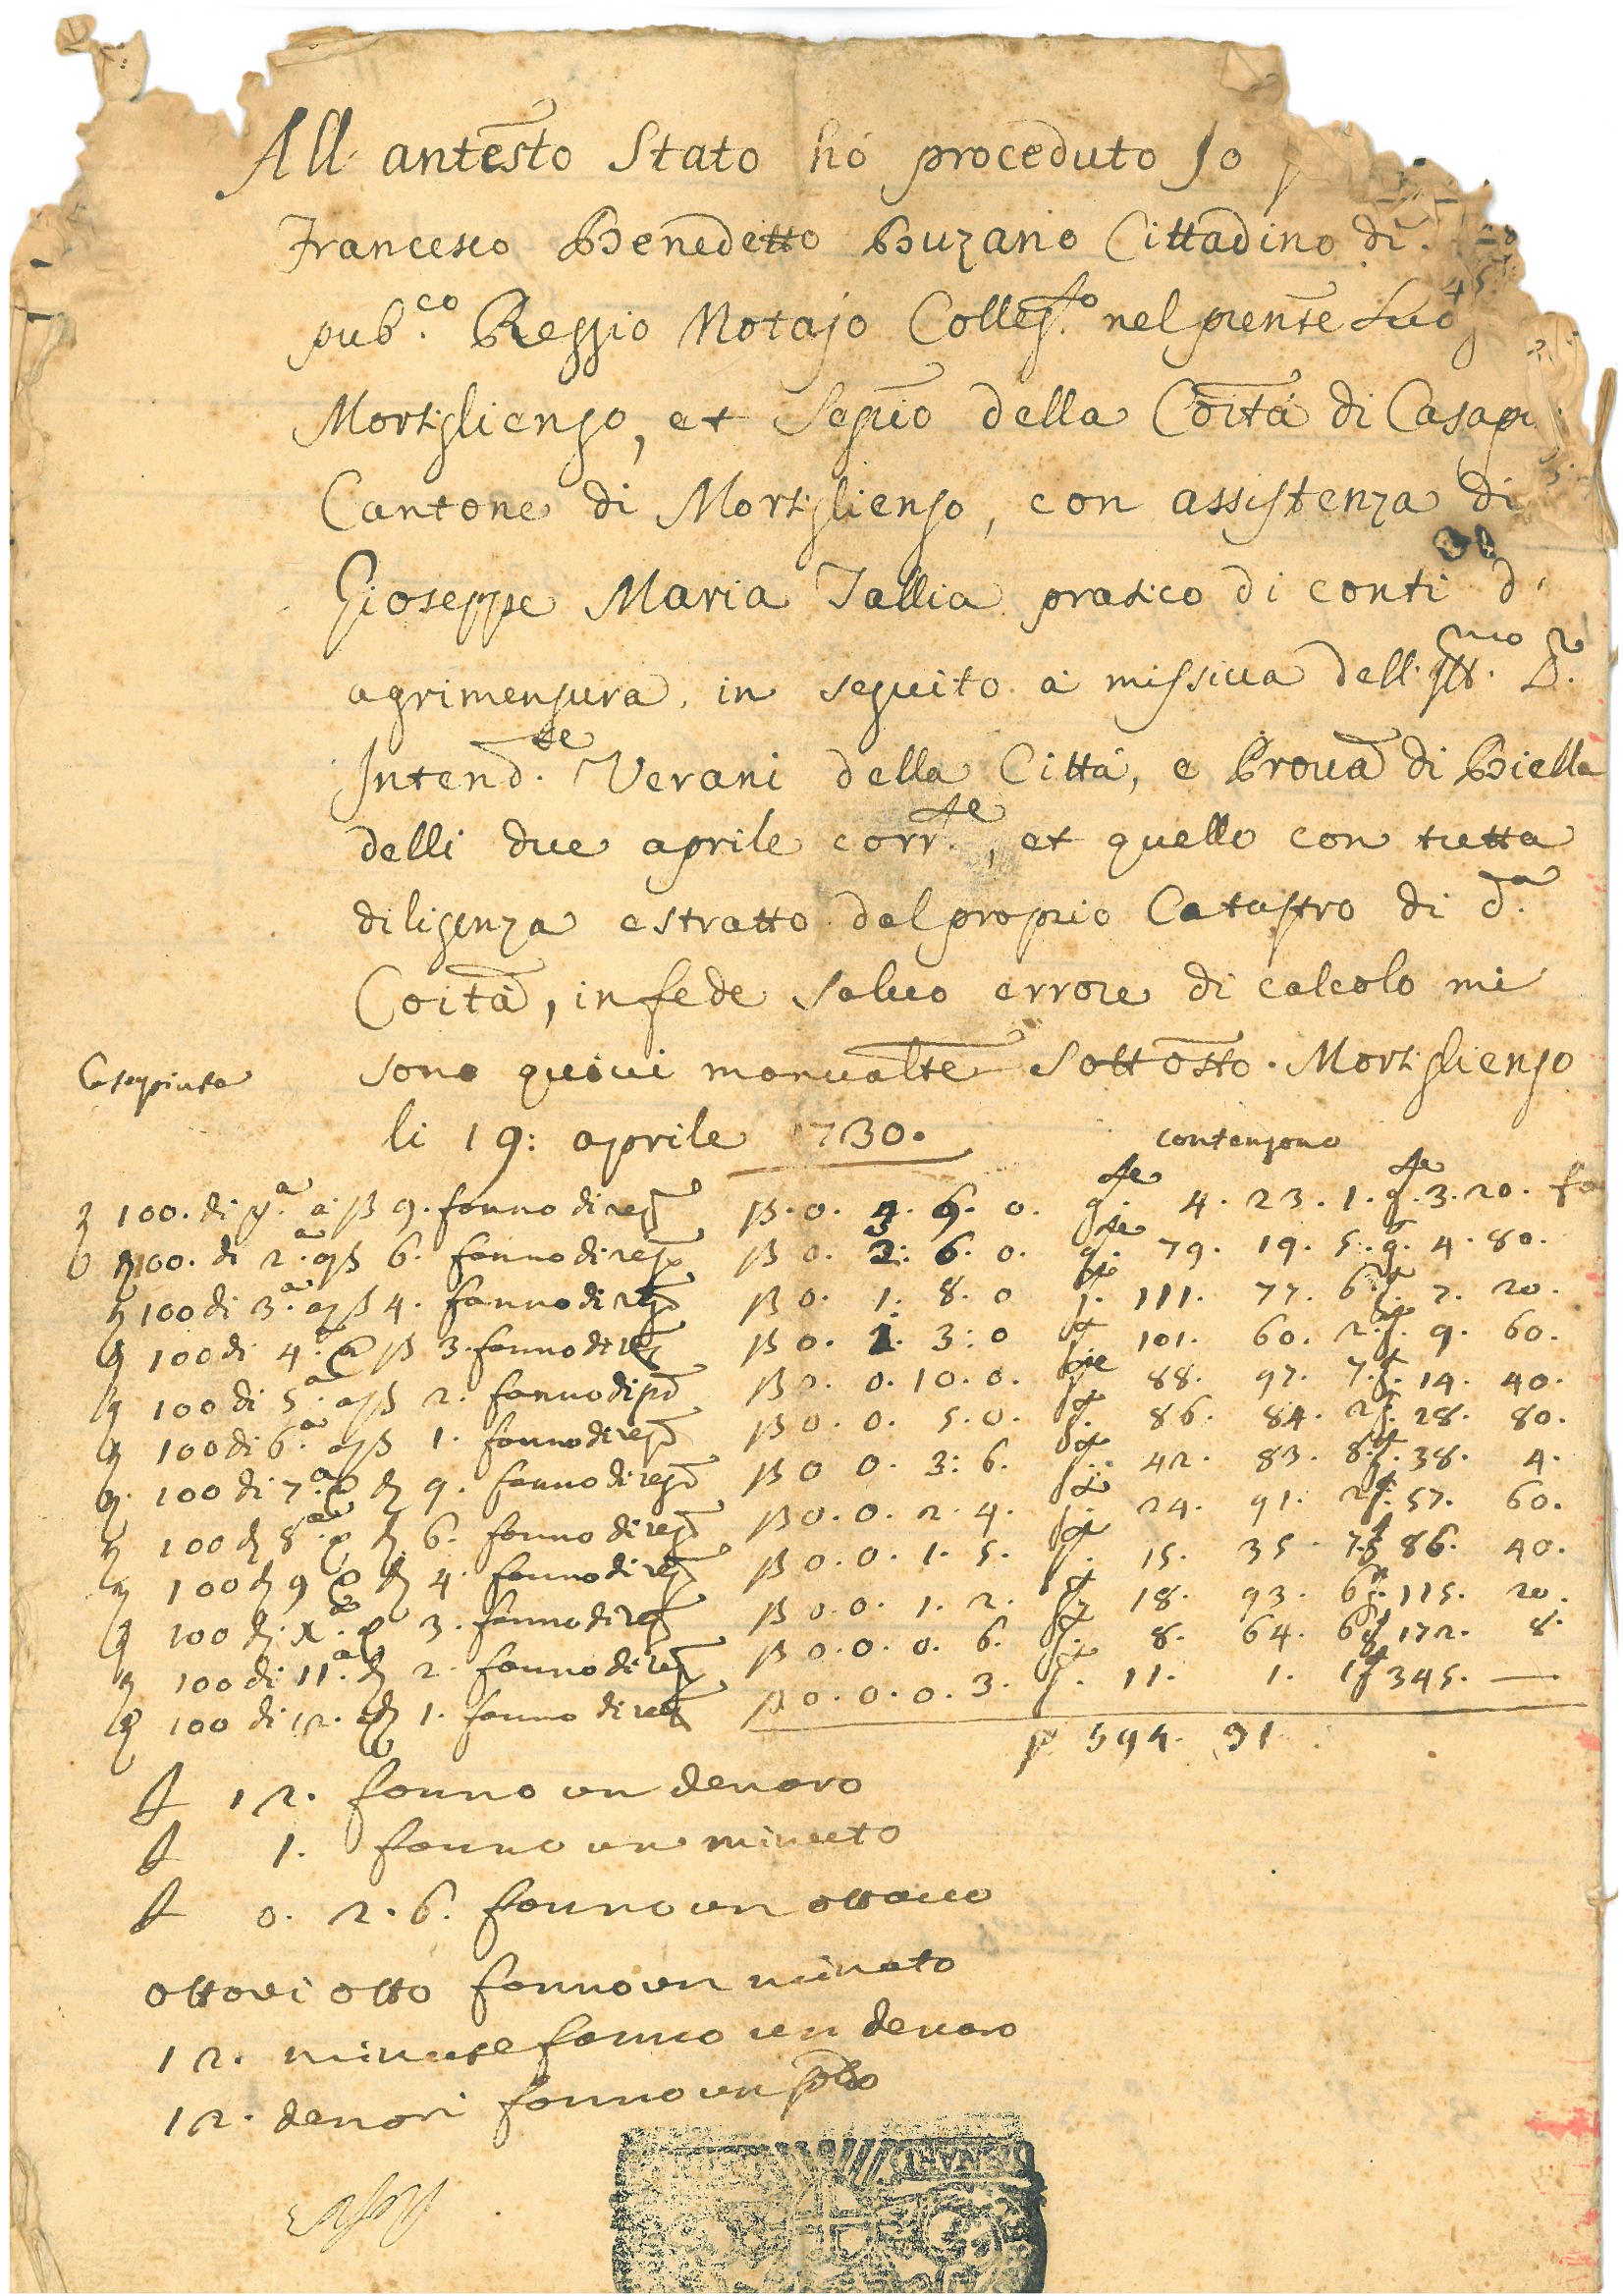 All antesto Stato hó proceduto Io
Francesco Benedetto Buzano Cittadino di
pub.co Reggio Notajo Colleg.to nel prente Luo
Mortigliengo, et Segrio della Coità di Casap
Cantone di Mortigliengo, con assistenza di
Gioseppe Maria Tallia pratico di conti d
agrimensura in seguito a missiva dell Ill.mo S.r
Intend.te Verani della Città, e Prova di Biella
delli due aprile corr.te, et quello con tutta
diligenza estratto dal proprio Catastro di d.a
Coità, in fede salvo errore di calcolo mi
Casapinta
sono quivi manualte Sottosto. Mortiglengo
li 19: aprile 1730.
contengono
100. di p.a a ß 9. fanno di reg ß. 0. 4. 6. 0. g.te 4. 23. 1. g.te 3. 20. fa
100. di 2.a a ß 6. fanno di reg ß 0. 3: 6. 0 g.te 79. 19. 5. g. 4. 80.
100 di 3.a a ß 4. fanno di reg ß 0. 1. 8. 0 111. 77. 6. 7. 20.
100 di 4.a a ß 3. fanno di reg ß 0. 1. 3: 0 101. 60. 2. 9. 60.
100 di 5.a a ß 2. fanno di ß 0. 0. 10. 0. 88. 97. 7. 14. 40.
100 di 6.a a ß 1. fanno di reg ß 0. 0. 5. 0. 86. 84. 2. 28. 80.
100 di 7.a 9. fanno di reg ß 0 0. 3: 6. 42. 83. 8. 38. 4.
100 d 8.a 6. fanno di reg ß 0. 0. 2. 4. 24. 91. 2. 57. 60.
100 d 9 4. fanno di reg ß 0. 0. 1. 5. 15. 35. 7. 86. 40.
100 d. X. 3. fanno di reg ß 0. 0. 1. 2. 18. 93. 6. 115. 20.
100 di 11.a 2. fanno di reg ß 0. 0. 0. 6. 8. 64. 6 172. 8.
100 di 12. 1. fanno di reg ß 0. 0. 0. 3. 11. 1. 1 345. —
594. 31
12. fanno un denaro
1. fanno un minuto
0. 2. 6. fanno un ottavo
ottavi otto fanno un minuto
12. minute fanno un denaro
12. denari fanno un